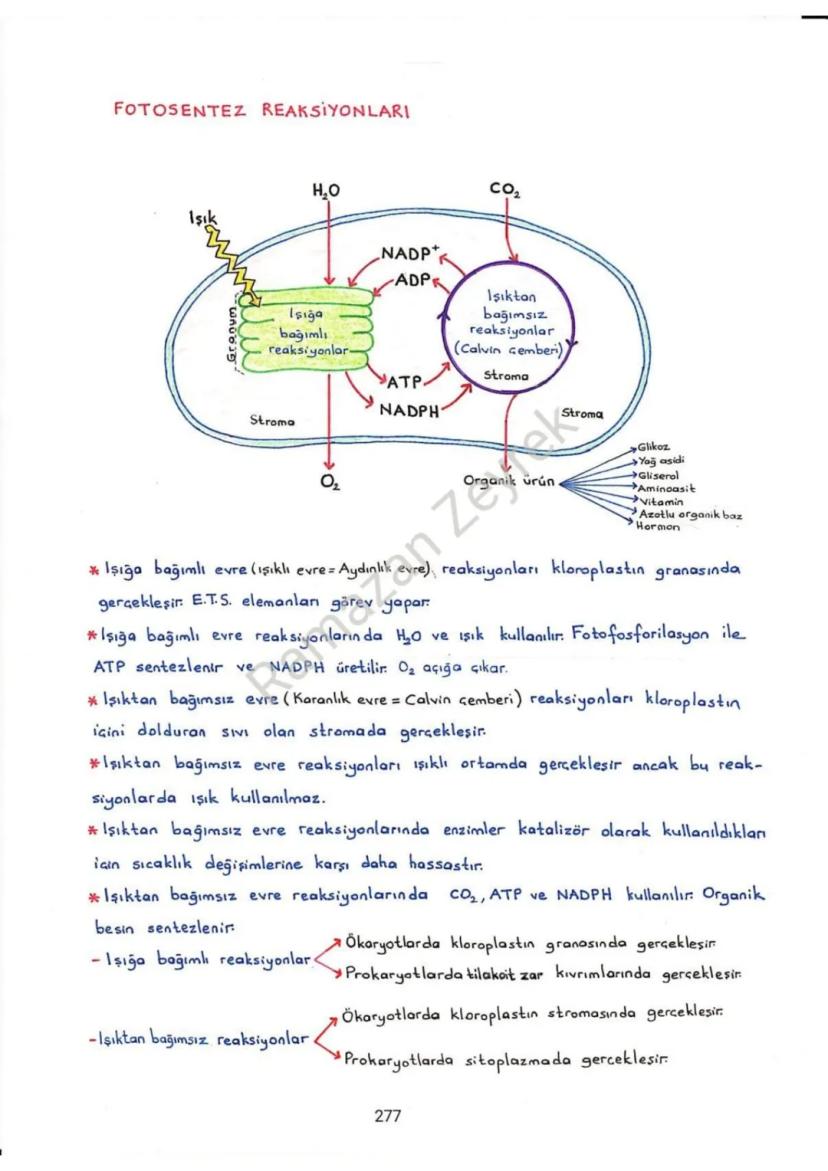 FOTOSENTEZ REAKSİYONLARI
H₂O
CO₂
Işık
NADP⁺
ADP
Granum
Işığa
bağımlı
reaksiyonlar
Işıktan
bağımsız
reaksiyonlar
(Calvin çemberi)
Stroma
ATP
NADPH
Stroma
Stroma
O₂
Organik ürün
Glikoz
Yağ asidi
Gliserol
Aminoasit
Vitamin
Azotlu organik baz
Hormon
* Işığa bağımlı evre (ışıklı evre = Aydınlık evre), reaksiyonları kloroplastın granasında
gerçekleşir. E.T.S. elemanları görev yapar.
* Işığa bağımlı evre reaksiyonlarında H₂O ve ışık kullanılır. Fotofosforilasyon ile
ATP sentezlenir ve NADPH üretilir. O₂ açığa çıkar.
* Işıktan bağımsız evre (Karanlık evre = Calvin çemberi) reaksiyonları kloroplastın
içini dolduran sıvı olan stromada gerçekleşir.
* Işıktan bağımsız evre reaksiyonları ışıklı ortamda gerçekleşir ancak bu reak-
siyonlarda ışık kullanılmaz.
* Işıktan bağımsız evre reaksiyonlarında enzimler katalizör olarak kullanıldıkları
için sıcaklık değişimlerine karşı daha hassastır.
* Işıktan bağımsız evre reaksiyonlarında CO₂, ATP ve NADPH kullanılır. Organik
besin sentezlenir.
- Işığa bağımlı reaksiyonlar
Ökaryotlarda kloroplastın granasında gerçekleşir.
Prokaryotlarda tilakoit zar kıvrımlarında gerçekleşir.
- Işıktan bağımsız reaksiyonlar
Ökaryotlarda kloroplastın stromasında gerçekleşir.
Prokaryotlarda sitoplazmada gerçekleşir.
Ramazan Zeyrek
277